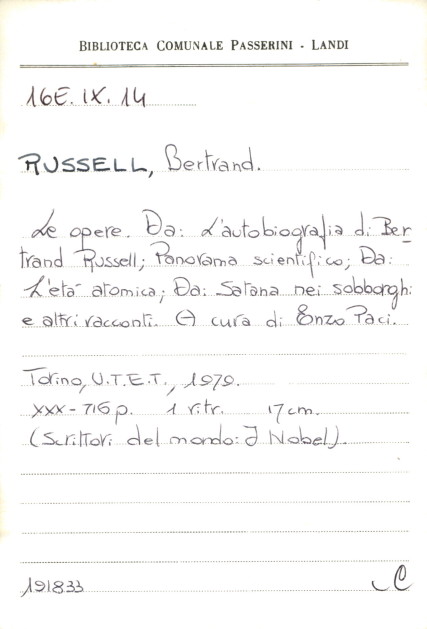 BIBLIOTECA COMUNALE PASSERINI - LANDI
16E. IX. 14
RUSSELL, Bertrand.
Le opere. Da: L'autobiografia di Ber-
trand Russell; Panorama scientifico; Da:
L'età atomica; Da: Satana nei sobborghi
e altri racconti. A cura di Enzo Paci.
Torino, U.T.E.T., 1979.
XXX-716 p. 1 ritr. 17 cm.
(Scrittori del mondo: I Nobel).
191833
C